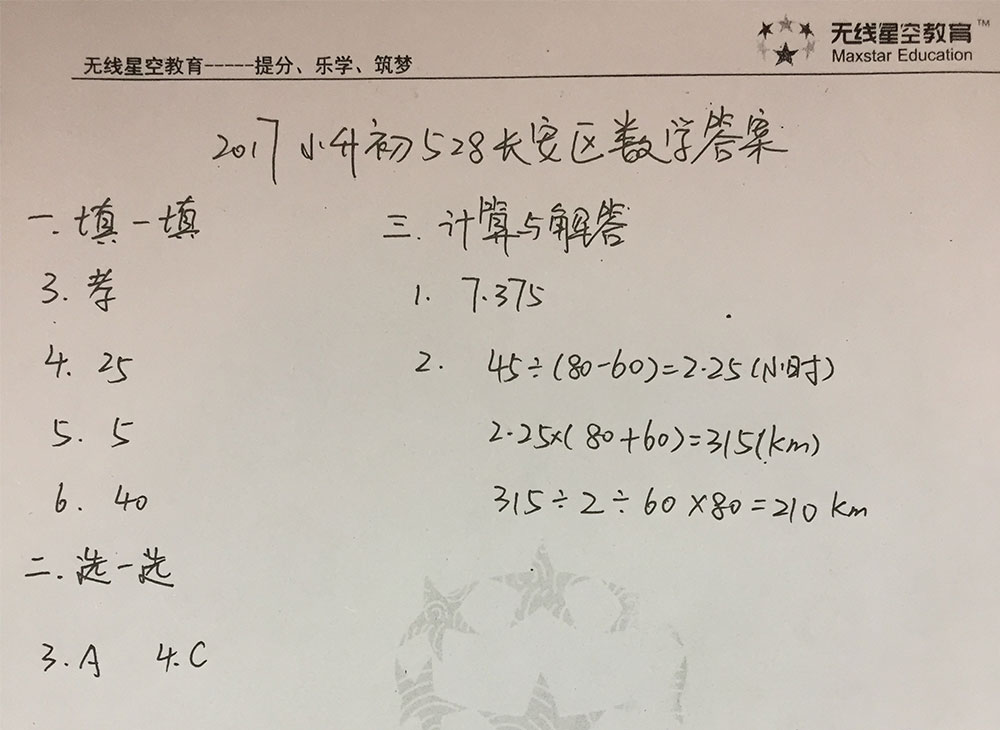 无线星空教育-----提分、乐学、筑梦
无线星空教育™
Maxstar Education
2017小升初528长安区数学答案
一.填一填
3. 孝
4. 25
5. 5
6. 40
二.选一选
3. A 4. C
三.计算与解答
1. 7.375
2. 45÷(80-60)=2.25(小时)
2.25×(80+60)=315(km)
315÷2÷60×80=210 km